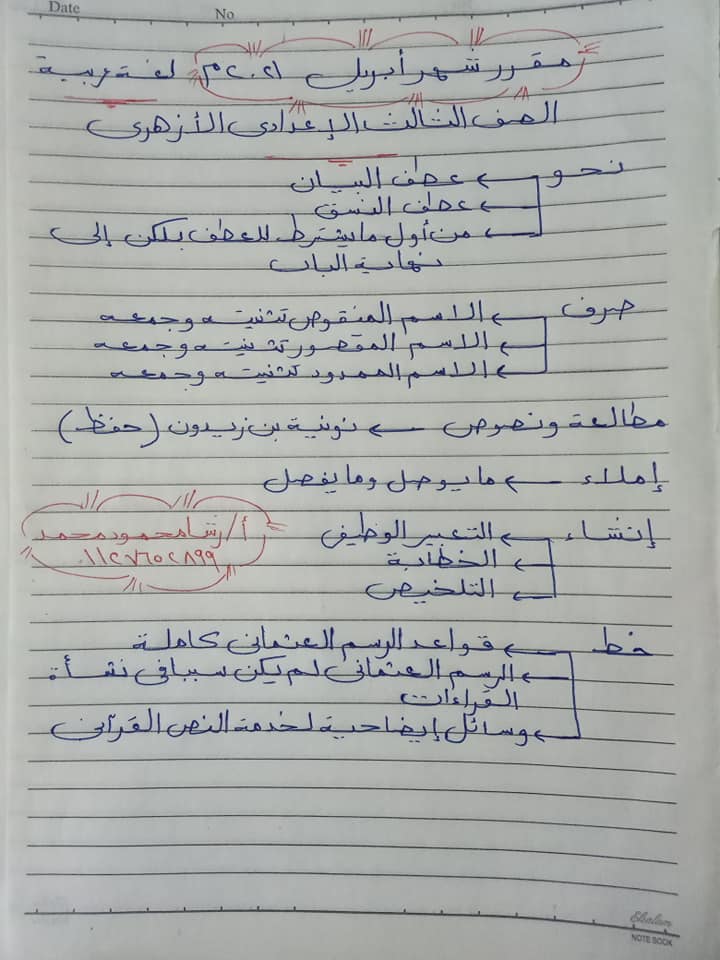 Date
No
مقرر شهر أبريل ٢٠٢١م لغة عربية
الصف الثالث الإعدادى الأزهرى
نحو ← عطف البيان
← عطف النسق
← من أول ما يشترط للعطف بلكن إلى
نهاية الباب
صرف ← الاسم المنقوص تثنيته وجمعه
← الاسم المقصور تثنيته وجمعه
← الاسم الممدود تثنيته وجمعه
مطالعة ونصوص ← نونية بن زيدون (حفظ)
إملاء ← ما يوصل وما يفصل
إنشاء ← التعبير الوظيفى
← الخطابة
← التلخيص
أ/رشا محمود محمد
٠١١٢٧٦٥٢٨٩٩
خط ← قواعد الرسم العثمانى كاملة
← الرسم العثمانى لم يكن سببا فى نشأة
القراءات
← وسائل إيضاحية لخدمة النص القرآنى
Elsalam
NOTE BOOK